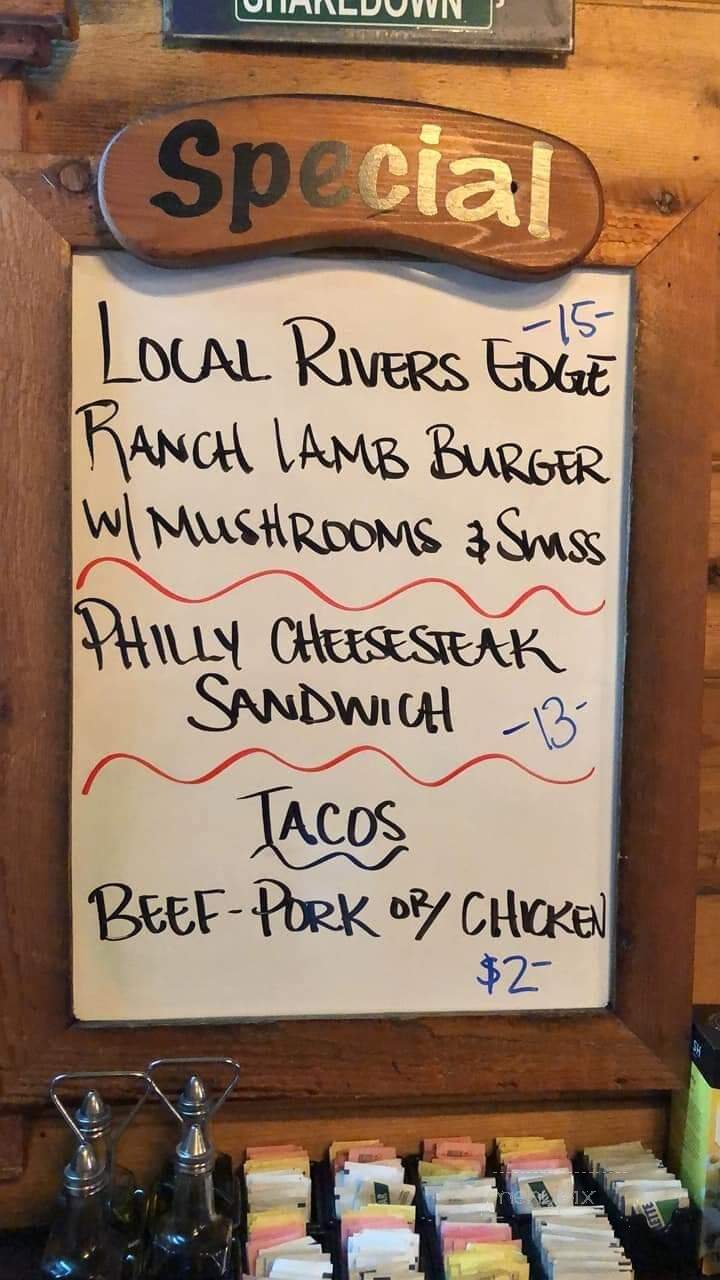 SHAKEDOWN
Special
-15-
LOCAL RIVERS EDGE
RANCH LAMB BURGER
W/ MUSHROOMS & SWISS
PHILLY CHEESESTEAK
SANDWICH
-13-
TACOS
BEEF-PORK OR/ CHICKEN
$2-